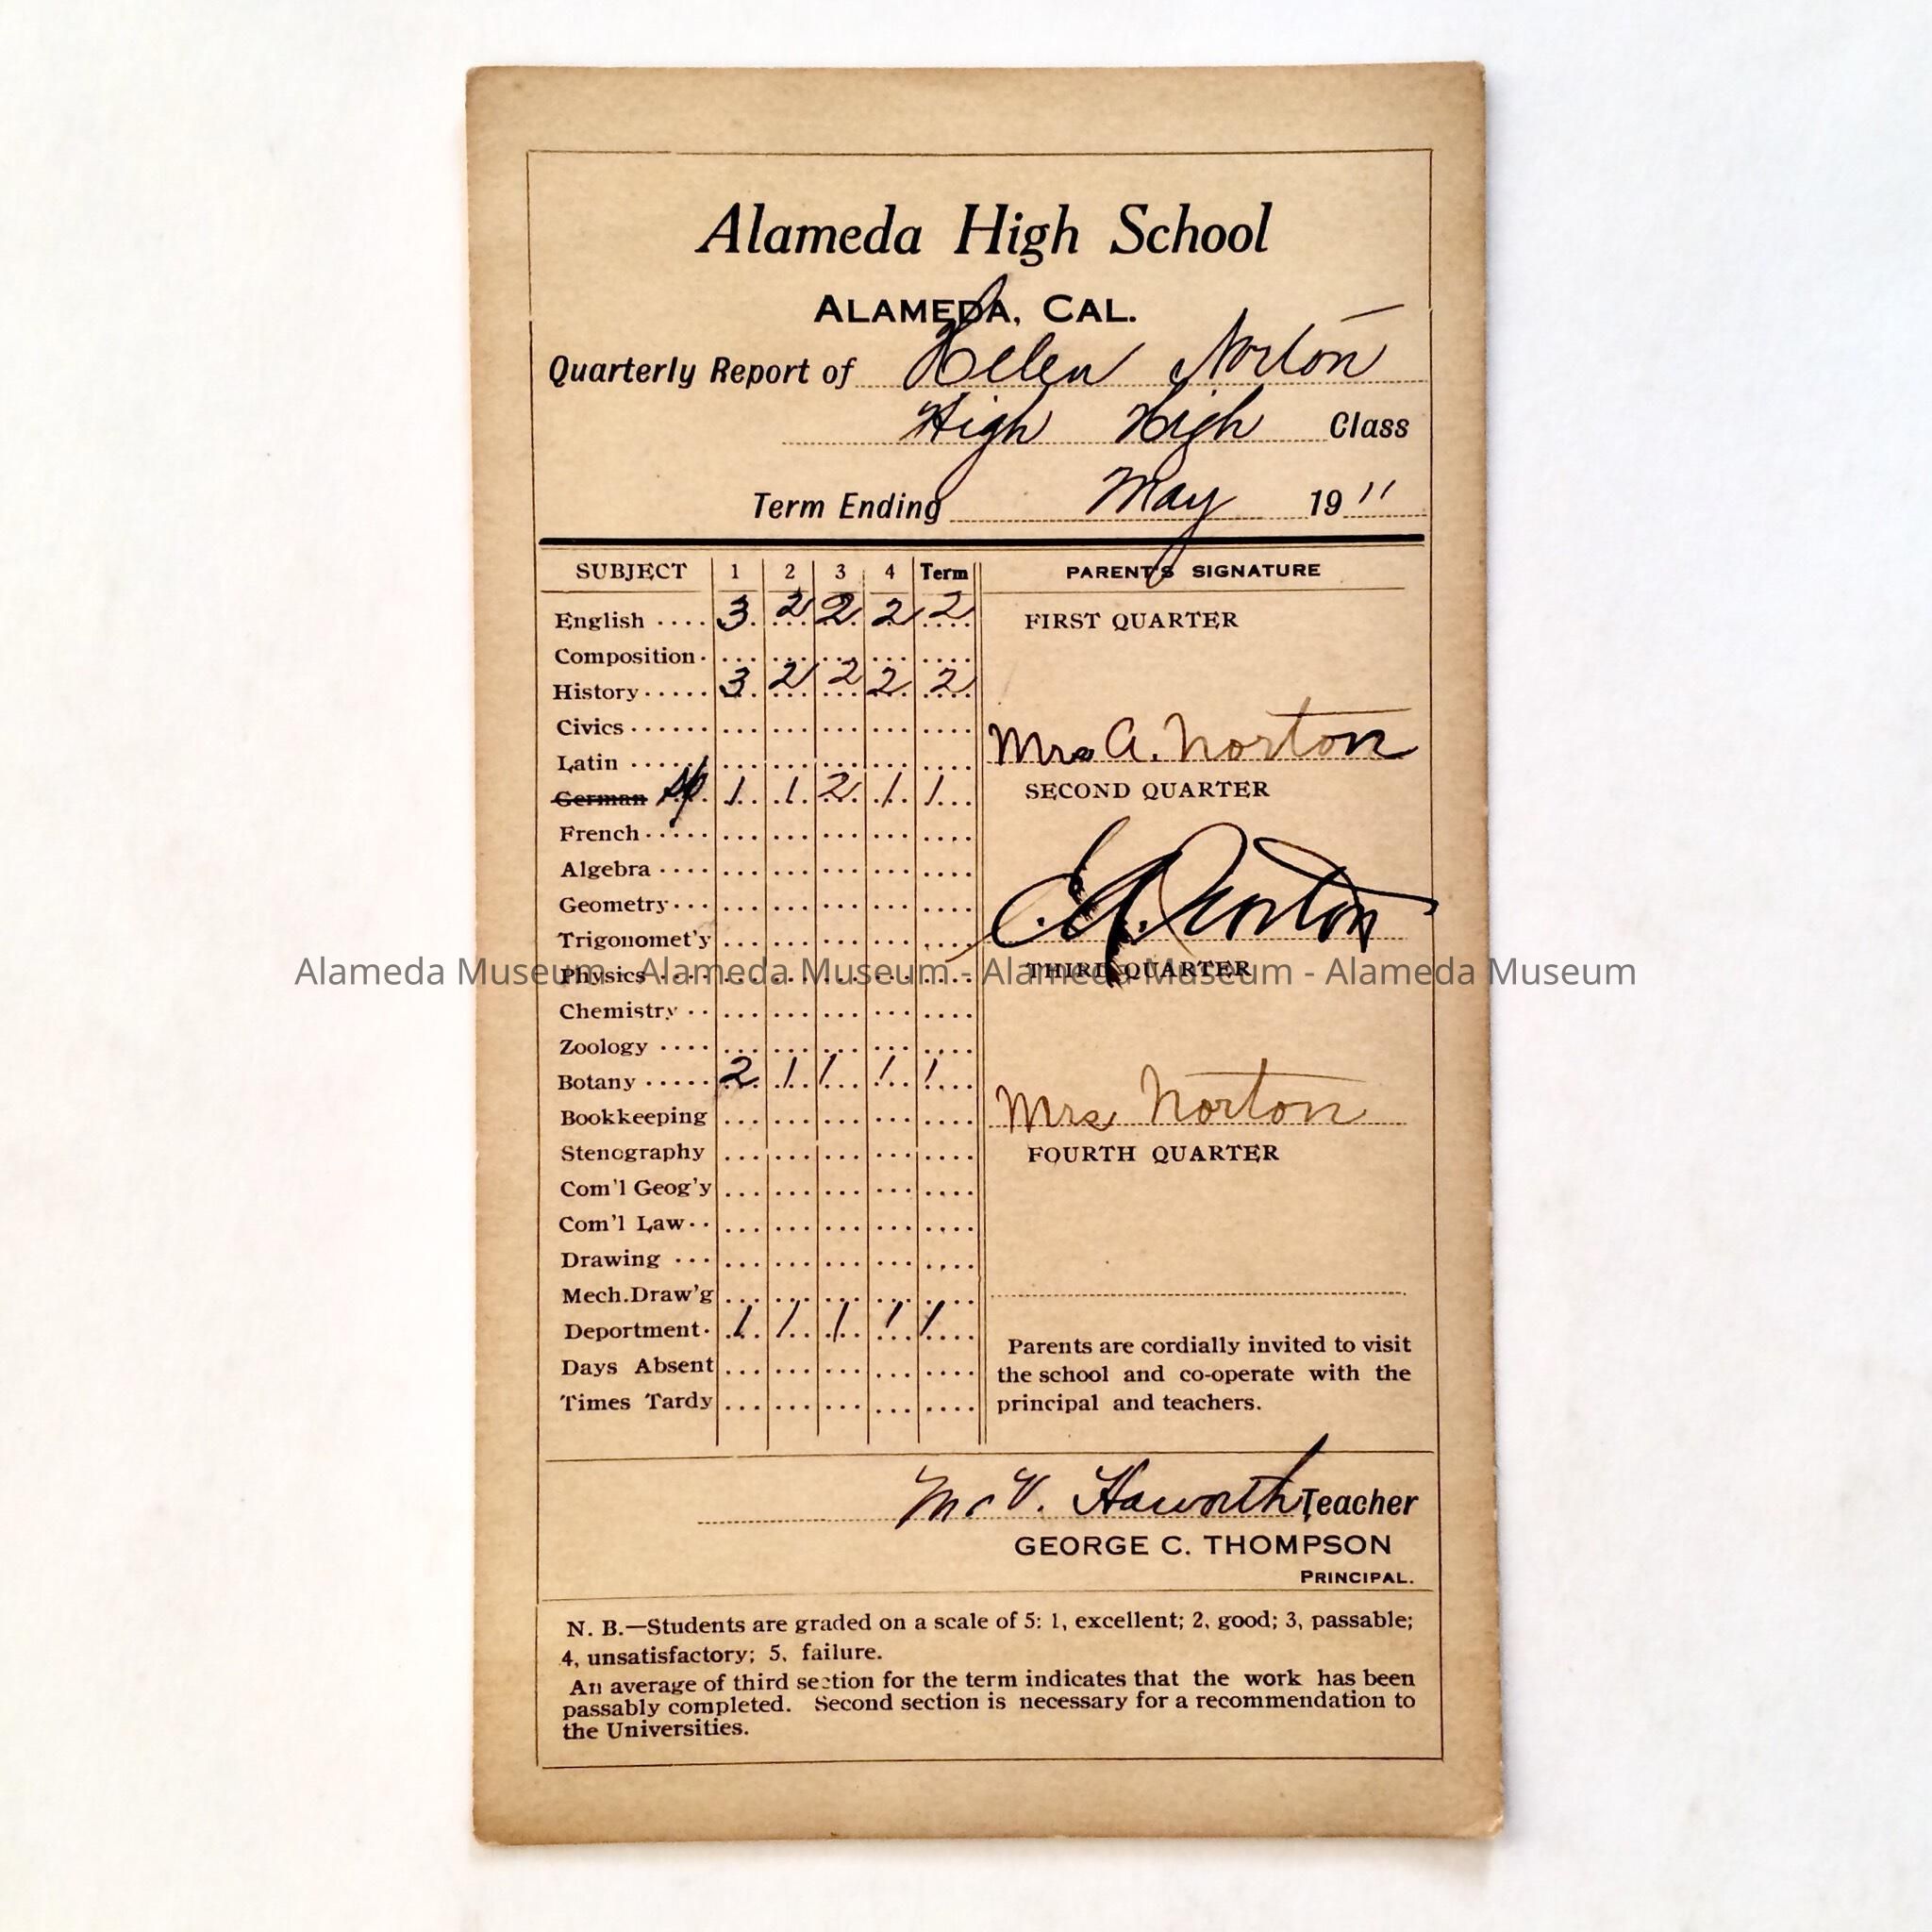 Alameda High School
ALAMEDA, CAL.
Quarterly Report of Helen Norton
High High Class
Term Ending May 19 11
SUBJECT 1 2 3 4 Term
English .... 3 2 2 2 2
Composition.
History..... 3 2 2 2 2
Civics ......
Latin .....
German Sp. 1 1 2 1 1
French.....
Algebra ....
Geometry...
Trigonomet'y
Physics ....
Chemistry ..
Zoology ....
Botany ..... 2 1 1 1 1
Bookkeeping
Stenography
Com'l Geog'y
Com'l Law..
Drawing ...
Mech.Draw'g
Deportment. 1 1 1 1 1
Days Absent
Times Tardy
PARENT'S SIGNATURE
FIRST QUARTER
Mrs A. Norton
SECOND QUARTER
C. A. Norton
THIRD QUARTER
Mrs Norton
FOURTH QUARTER
Parents are cordially invited to visit
the school and co-operate with the
principal and teachers.
V. Haworth Teacher
GEORGE C. THOMPSON
PRINCIPAL.
N. B.—Students are graded on a scale of 5: 1, excellent; 2, good; 3, passable;
4, unsatisfactory; 5, failure.
An average of third section for the term indicates that the work has been
passably completed. Second section is necessary for a recommendation to
the Universities.
Alameda Museum - Alameda Museum - Alameda Museum - Alameda Museum